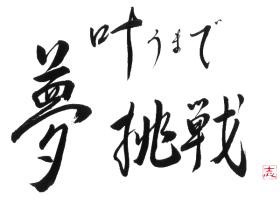 夢
叶うまで
挑戦
志